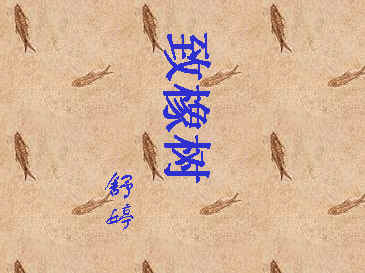 致橡树
舒婷